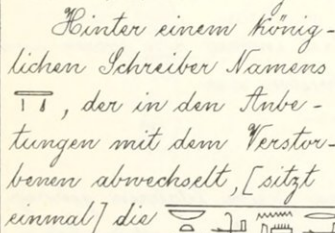 Hinter einem könig-
lichen Schreiber Namens
, der in den Anbe-
tungen mit dem Verstor-
benen abwechselt, [sitzt
einmal] die